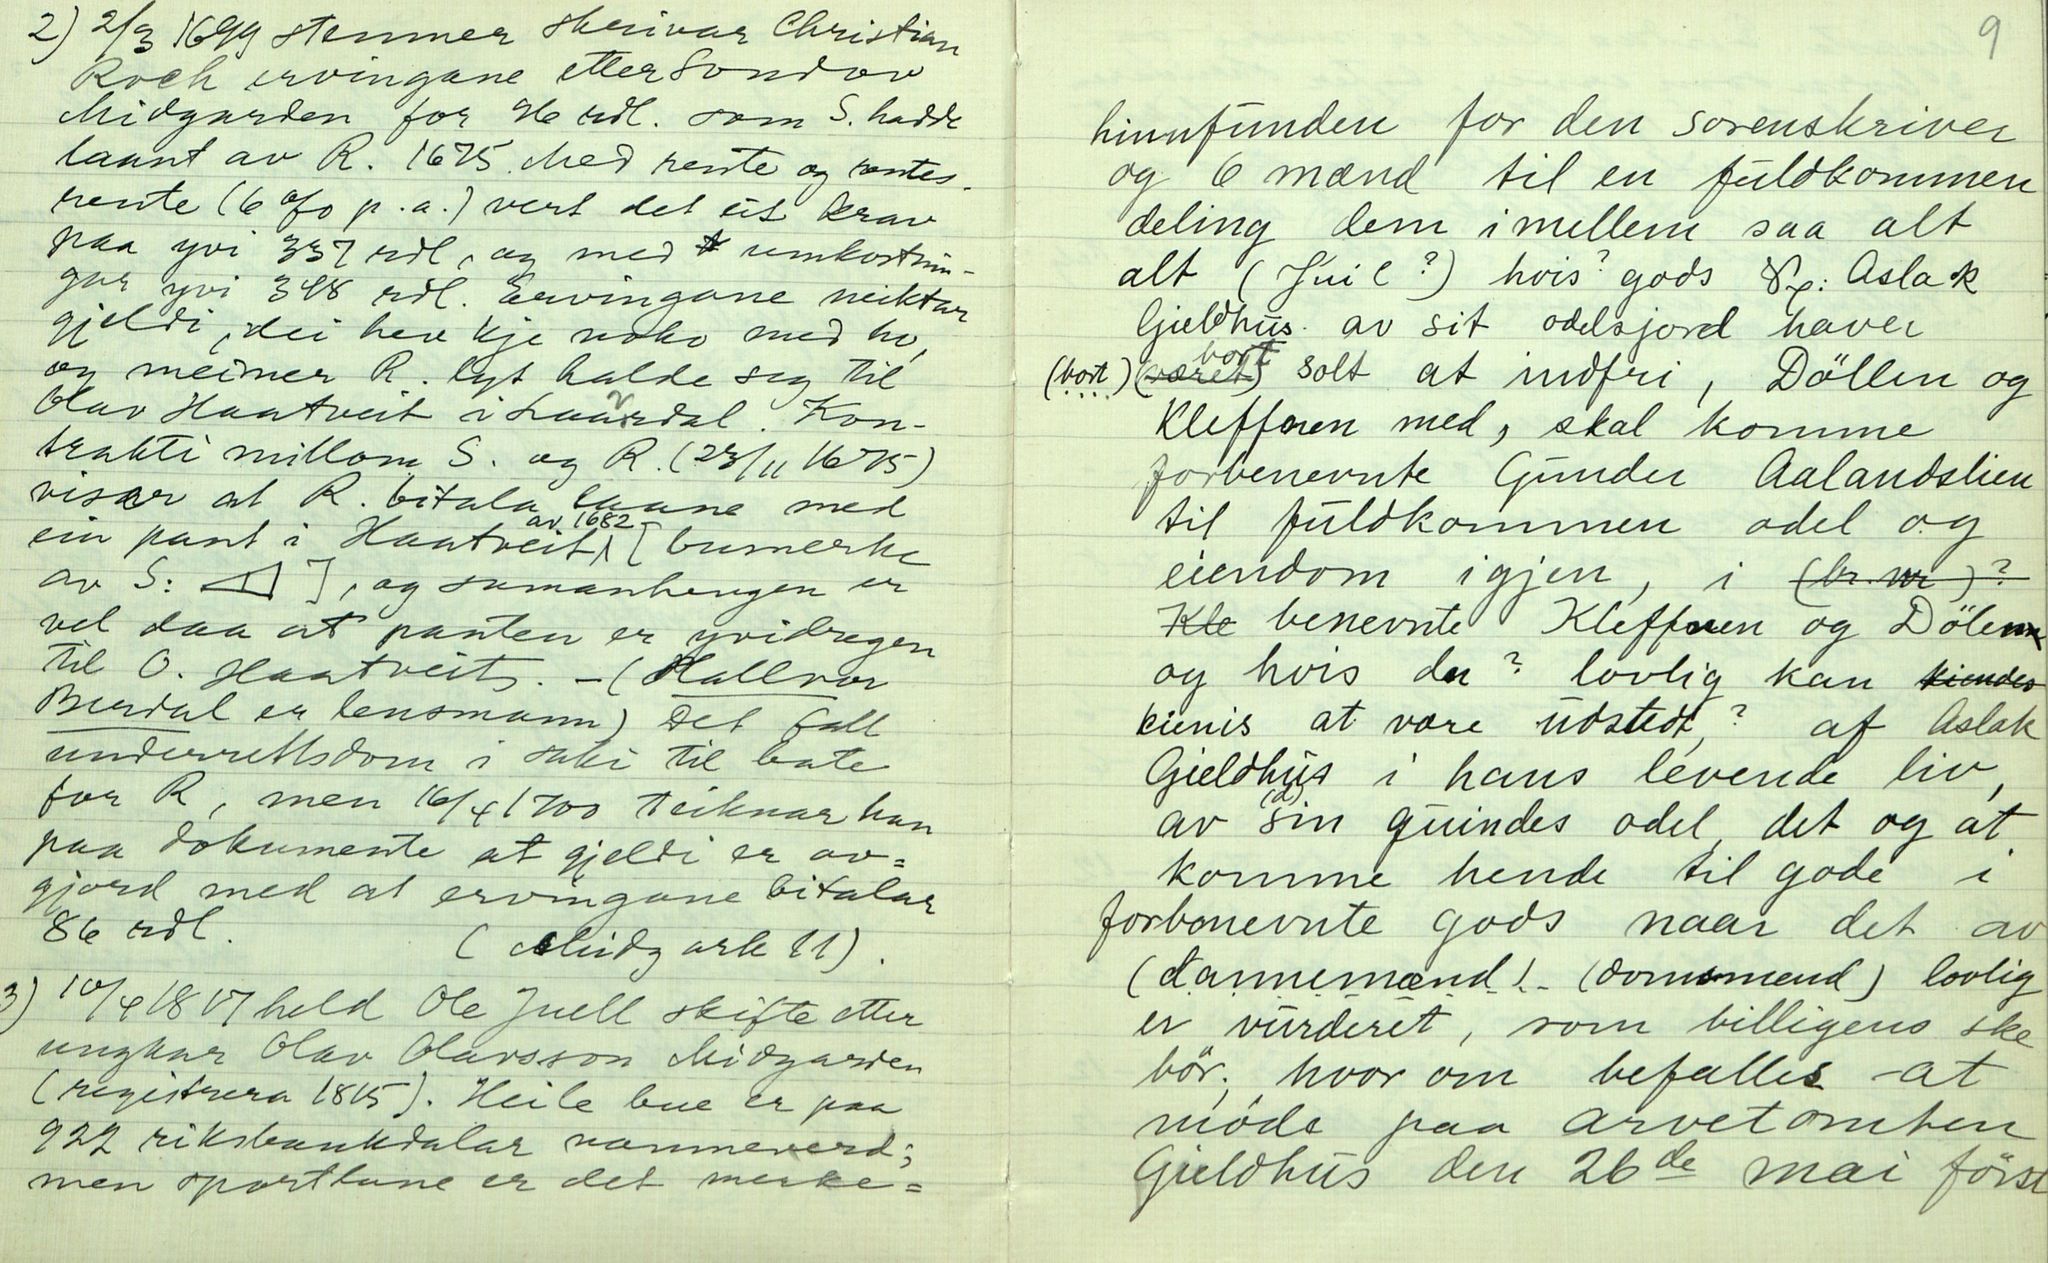 2) 2/3 1699 stemner skrivar Christian
Roch ervingane etter Sondov
Midgarden for 96 rdl. som S. hadde
laant av R. 1675. Med rente og rentes-
rente (6 % p.a.) vert det eit krav
paa yvi 337 rdl, og med umkostnin-
gar yvi 348 rdl. Ervingane neiktar
gjeldi, dei hev kje noko med ho,
og meiner R. lyt halde seg til
Olav Haatveit i Laardal. Kon-
trakti millom S. og R. (23/11 1675)
viser at R. bitala laane med
ein pant i Haatveit, av 1682 [bumerke
av S: ], og samanhengen er
vel daa at panten er yvidregen
til O. Haatveit. – (Hallvor
Berdal er lensmann) Det fall
underrettsdom i saki til bate
for R, men 16/4 1700 teiknar han
paa dokumente at gjeldi er av=
gjord med at ervingane bitalar
86 rdl.
(Midg ark 11).
3) 10/4 1817 held Ole Juell skifte etter
ungkar Olav Olavsson Midgarden
(registrera 1815). Heile bue er paa
922 riksbankdalar namneverd;
men sportlane er det merke=
9
hinnfunden for den sorenskriver
og 6 mænd til en fuldkommen
deling dem imellem saa alt
alt (Juil?) hvis? gods : Aslak
Gieldhus av sit odelsjord haver
(bort) (været) bort solt at indfri, Döllen og
Kleffnen med, skal komme
forbenevnte Gunder Aalandslien
til fuldkommen odel og
eiendom igjen, i (br. nr)?
Kle benevnte Kleffnen og Dölen
og hvis der? lovlig kan kiendes
kienis at være udstedt,? af Aslak
Gieldhus i hans levende liv,
av sin (d) quindes odel, det og at
komme hende til gode i
forbenevnte gods naar det av
(dannemænd!- (domsmend) lovlig
er vurderet, som billigens ske
bör; hvor om befalles at
möde paa arvetomten
Gieldhus den 26de mai först